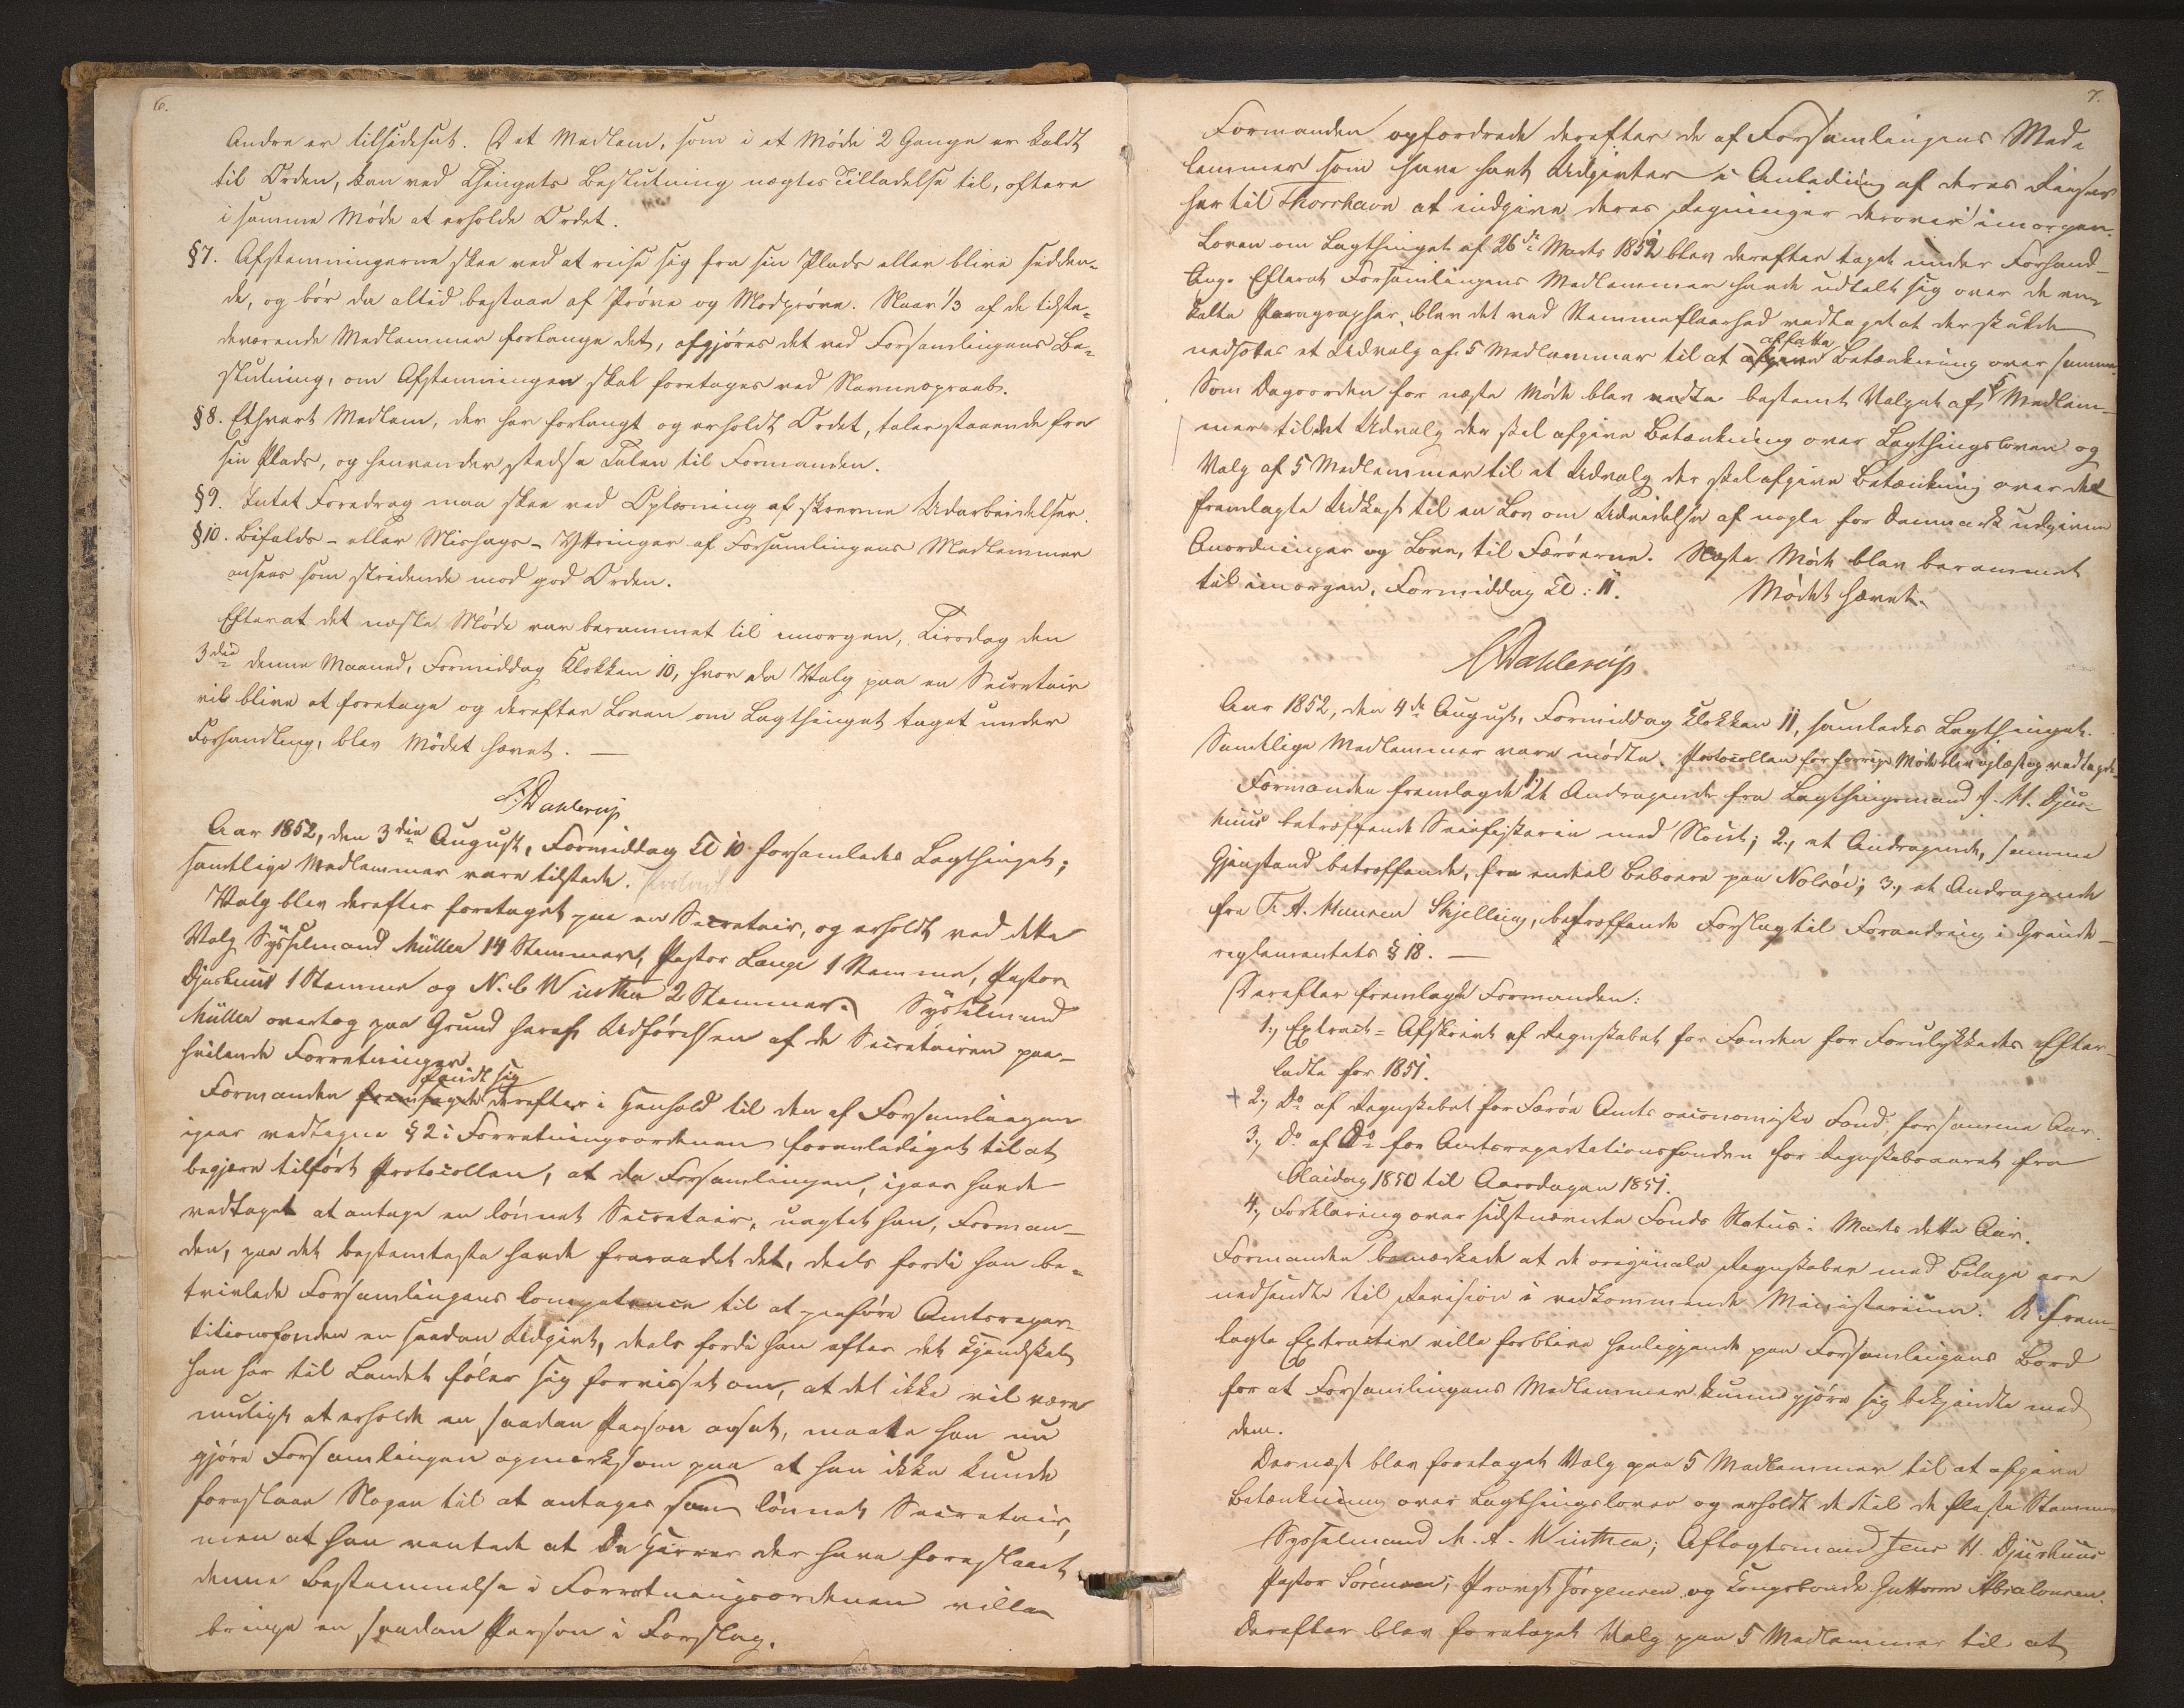 6.
Andre er tilsidesat. Det Medlem, som i et Möde 2 Gange er kaldt
til Orden, kan ved Thingets Beslutning nægtes Tilladelse til, oftere
i samme Möde at erholde Ordet.
§7. Afstemningerne skee ved at reise sig fra sin Plads eller blive sidden-
de, og bör da altid bestaae af Pröve og Modpröve. Naar 1/3 af de tilste-
deværende Medlemmer forlange det, afgjöres det ved Forsamlingens Be-
slutning, om Afstemningen skal foretages ved Navneopraab.
§8. Ethvert Medlem, der har forlangt og erholdt Ordet, taler staaende fra
sin Plads, og henvender stedse Talen til Formanden.
§9. Intet Foredrag maa skee ved Oplæsning af skrevne Udarbeidelser.
§10. Bifalds- eller Mishags-Yttringer af Forsamlingens Medlemmer
ansees som stridende mod god Orden.
Efterat det næste Möde var berammet til imorgen, Tirsdag den
3die denne Maaned, Formiddag Klokken 10, hvor da Valg paa en Secretair
vil blive at foretage og derefter Loven om Lagthinget taget under
Forhandling, blev Mödet hævet. —
C. Dahlerup
Aar 1852, den 3die August, Formiddag Kl 10 forsamledes Lagthinget;
samtlige Medlemmer vare tilstede.
Valg blev derefter foretaget paa en Secretair, og erholdt ved dette
Valg Sysselmand Müller 14 Stemmer, Pastor Lange 1 Stemme, Pastor
Djurhuus 1 Stemme og N. C Winther 2 Stemmer. Sysselmand
Müller overtog paa Grund heraf Udförelsen af de Secretairen paa-
hvilende Forretninger.
fandt sig
Formanden fremsagde derefter i Henhold til den af Forsamlingen
igaar vedtagne §2 i Forretningsordenen foranlediget til at
begjære tilfört Protocollen, at da Forsamlingen, igaar havde
vedtaget at antage en lönnet Secretair, uagtet han, Forman-
den, paa det bestemteste havde fraraadet det, deels fordi han be-
tvivlede Forsamlingens Competence til at paaföre Amtsrepar-
titionsfonden en saadan Udgivt, deels fordi han efter det Kjendskab
han har til Landet föler sig forvisset om, at det ikke vil være
muligt at erholde en saadan Person ansat, maatte han nu
gjöre Forsamlingen opmærksom paa at han ikke kunde
foreslaae Nogen til at antages som lönnet Secretair,
men at han ventede at De Herrer der have foreslaaet
denne Bestemmelse i Forretningsordenen ville
bringe en saadan Person i Forslag.
7.
Formanden opfordrede derefter de af Forsamlingens Med-
lemmer som have havt Udgivter i Anledning af deres Reiser
her til Thorshavn at indgive deres Regninger derover imorgen.
Loven om Lagthinget af 26de Marts 1852 blev derefter taget under Forhand-
ling. Efterat Forsamlingens Medlemmer havde udtalt sig over de en-
kelte Paragrapher, blev det ved Stemmefleerhed vedtaget at der skulde
affatte
nedsættes et Udvalg af 5 Medlemmer til at afgive Betænkning over samme.
Som Dagsorden for næste Möde blev bestemt Valget af 5 Medlem-
mer til det Udvalg der skal afgive Betænkning over Lagthingsloven og
Valg af 5 Medlemmer til et Udvalg der skal afgive Betænkning over det
fremlagte Udkast til en Lov om Udvidelse af nogle for Danmark udgivne
Anordninger og Love, til Færöerne. Næste Möde blev berammet
til imorgen, Formiddag Kl: 11. Mödet hævet.
C. Dahlerup
Aar 1852, den 4de August, Formiddag Klokken 11, samledes Lagthinget.
Samtlige Medlemmer vare mödte. Protocollen for forrige Möde blev oplæst og vedtaget.
Formanden fremlagde 1., Et Andragende fra Lagthingsmand J. H. Djur-
huus betræffende Seiefiskerie med Noet; 2., et Andragende, samme
Gjenstand betræffende, fra endeel Beboere paa Nolsöe; 3., et Andragende
fra T. A. Hansen Skjelling, betræffende Forslag til Forandring i Grinde-
reglementets §18. —
Derefter fremlagde Formanden:
1., Extract-Afskrivt af Regnskabet for Fonden for Forulykkedes Efter-
ladte for 1851.
+ 2., Do af Regnskabet for Færöe Amts oeconomiske Fond, for samme Aar.
3., Do af Do for Amtsrepartitionsfonden for Regnskabsaaret fra
Olaidag 1850 til Aarsdagen 1851.
4., Forklaring over sidstnævnte Fonds Status i Marts dette Aar.
Formanden bemærkede at de originale Regnskaber med Bilage ere
nedsendte til Revision i vedkommende Ministerium. De frem-
lagte Extracter ville forblive henliggende paa Forsamlingens Bord
for at Forsamlingens Medlemmer kunne gjöre sig bekjendte med
dem.
Dernæst blev foretaget Valg paa 5 Medlemmer til at afgive
Betænkning over Lagthingsloven og erholdt dertil de fleste Stemmer
Sysselmand M. A. Winther; Aftagtsmand Jens H. Djurhuus
Pastor Sörensen; Provst Jörgensen og Kongsbonde Guttorm Absalonsen.
Derefter blev foretaget Valg paa 5 Medlemmer til at